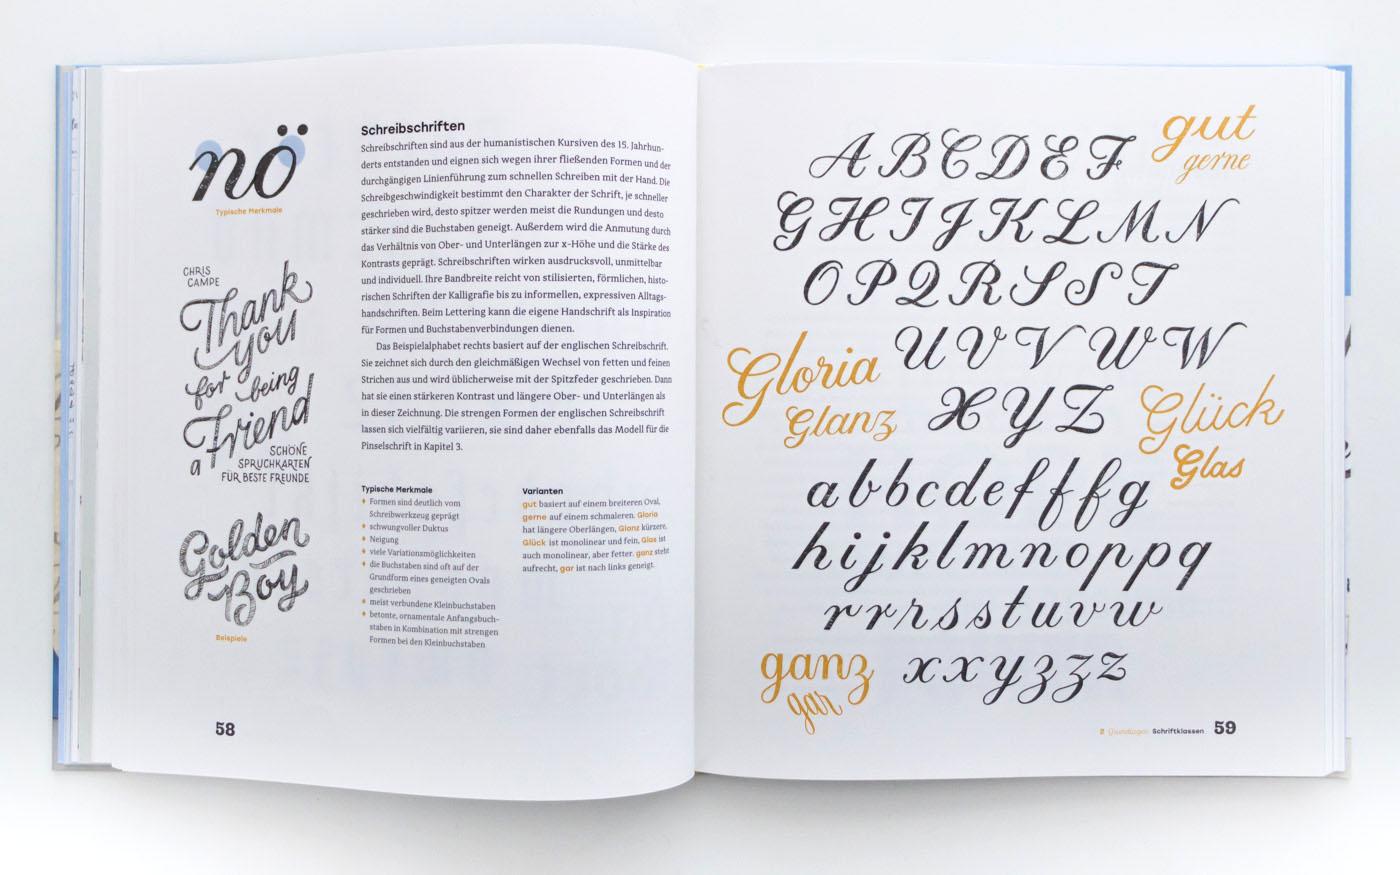 nö
Typische Merkmale
CHRIS
CAMPE
Thank
you
for being
a Friend
SCHÖNE
SPRUCHKARTEN
FÜR BESTE FREUNDE
Golden
Boy
Beispiele
Schreibschriften
Schreibschriften sind aus der humanistischen Kursiven des 15. Jahrhun-
derts entstanden und eignen sich wegen ihrer fließenden Formen und der
durchgängigen Linienführung zum schnellen Schreiben mit der Hand. Die
Schreibgeschwindigkeit bestimmt den Charakter der Schrift, je schneller
geschrieben wird, desto spitzer werden meist die Rundungen und desto
stärker sind die Buchstaben geneigt. Außerdem wird die Anmutung durch
das Verhältnis von Ober- und Unterlängen zur x-Höhe und die Stärke des
Kontrasts geprägt. Schreibschriften wirken ausdrucksvoll, unmittelbar
und individuell. Ihre Bandbreite reicht von stilisierten, förmlichen, histo-
rischen Schriften der Kalligrafie bis zu informellen, expressiven Alltags-
handschriften. Beim Lettering kann die eigene Handschrift als Inspiration
für Formen und Buchstabenverbindungen dienen.
Das Beispielalphabet rechts basiert auf der englischen Schreibschrift.
Sie zeichnet sich durch den gleichmäßigen Wechsel von fetten und feinen
Strichen aus und wird üblicherweise mit der Spitzfeder geschrieben. Dann
hat sie einen stärkeren Kontrast und längere Ober- und Unterlängen als
in dieser Zeichnung. Die strengen Formen der englischen Schreibschrift
lassen sich vielfältig variieren, sie sind daher ebenfalls das Modell für die
Pinselschrift in Kapitel 3.
Typische Merkmale
Formen sind deutlich vom
Schreibwerkzeug geprägt
schwungvoller Duktus
Neigung
viele Variationsmöglichkeiten
die Buchstaben sind oft auf der
Grundform eines geneigten Ovals
geschrieben
meist verbundene Kleinbuchstaben
betonte, ornamentale Anfangsbuch-
staben in Kombination mit strengen
Formen bei den Kleinbuchstaben
Varianten
gut basiert auf einem breiteren Oval,
gerne auf einem schmaleren. Gloria
hat längere Oberlängen, Glanz kürzere.
Glück ist monolinear und fein, Glas ist
auch monolinear, aber fetter. ganz steht
aufrecht, gar ist nach links geneigt.
58
A B C D E F
gut
gerne
G H I J K L M N
O P Q R S S T
U V V W W
Gloria
Glanz
X Y Z
Glück
Glas
a b b c d e f f f g
h i j k l m n o p p q
r r r s s t u v w
ganz
gar
x x y z z z
2 Grundlagen Schriftklassen 59